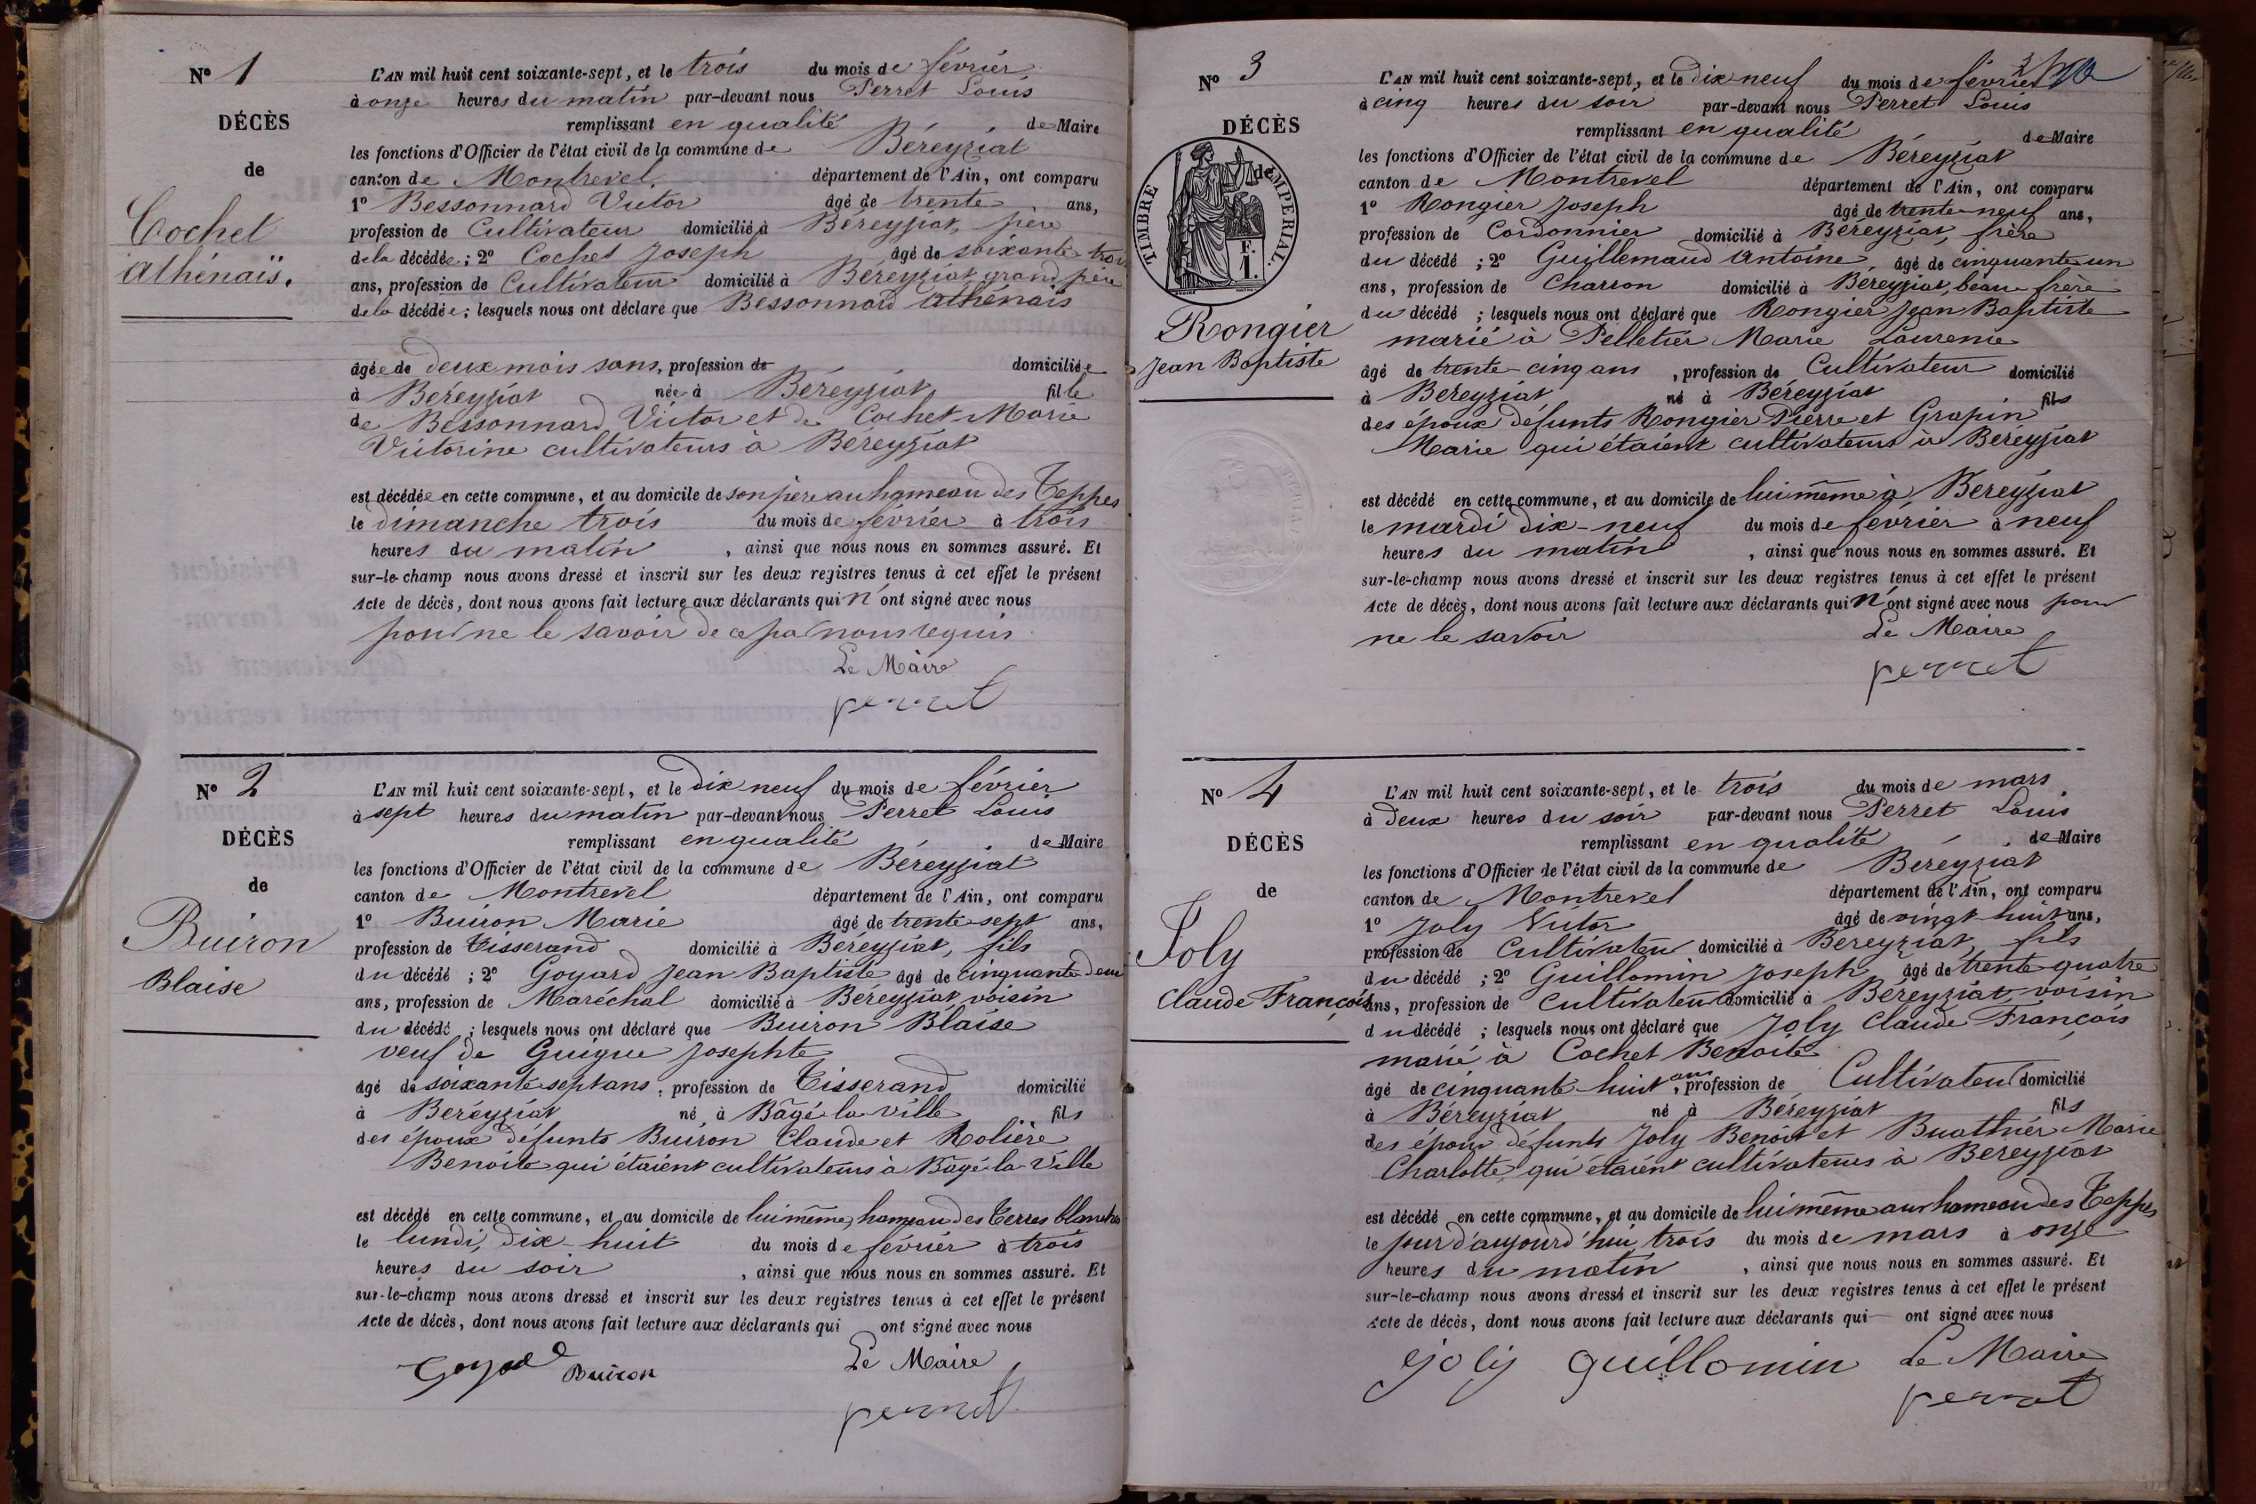 N° 1
DÉCÈS
de
Cochet
Athénaïs.
L'AN mil huit cent soixante-sept, et le trois du mois de février
à onze heures du matin par-devant nous Perret Louis
remplissant en qualité de Maire
les fonctions d'Officier de l'état civil de la commune de Béreyziat
canton de Montrevel. département de l'Ain, ont comparu
1° Bessonnard Victor âgé de trente ans,
profession de Cultivateur domicilié à Béreyziat, père
de la décédée ; 2° Cochet Joseph âgé de soixante trois
ans, profession de Cultivateur domicilié à Béreyziat, grand père
de la décédée ; lesquels nous ont déclaré que Bessonnard Athénaïs
âgée de deux mois sans, profession de domiciliée
à Béreyziat née à Béreyziat, fille
de Bessonnard Victor et de Cochet Marie
Victorine cultivateurs à Béreyziat
est décédée en cette commune, et au domicile de son père au hameau des Teppes
le dimanche trois du mois de février à trois
heures du matin , ainsi que nous nous en sommes assuré. Et
sur-le-champ nous avons dressé et inscrit sur les deux registres tenus à cet effet le présent
Acte de décès, dont nous avons fait lecture aux déclarants qui n'ont signé avec nous
pour ne le savoir de ce par nous requis
Le Maire
perret
N° 2
DÉCÈS
de
Buiron
Blaise
L'AN mil huit cent soixante-sept, et le dix neuf du mois de février
à sept heures du matin par-devant nous Perret Louis
remplissant en qualité de Maire
les fonctions d'Officier de l'état civil de la commune de Béreyziat
canton de Montrevel département de l'Ain, ont comparu
1° Buiron Marie âgé de trente sept ans,
profession de Tisserand domicilié à Béreyziat, fils
du décédé ; 2° Goyard Jean Baptiste âgé de cinquante deux
ans, profession de Maréchal domicilié à Béreyziat, voisin
du décédé ; lesquels nous ont déclaré que Buiron Blaise
veuf de Guigue Josephte
âgé de soixante sept ans, profession de Tisserand domicilié
à Béreyziat né à Bâgé la ville fils
des époux défunts Buiron Claude et Rolière
Benoite qui étaient cultivateurs à Bâgé la Ville
est décédé en cette commune, et au domicile de lui même, hameau des Terres blanches
le lundi, dix-huit du mois de février à trois
heures du soir , ainsi que nous nous en sommes assuré. Et
sur-le-champ nous avons dressé et inscrit sur les deux registres tenus à cet effet le présent
Acte de décès, dont nous avons fait lecture aux déclarants qui ont signé avec nous
Goyard Buiron Le Maire
perret
N° 3
DÉCÈS
de
TIMBRE IMPERIAL.
F.
1.
Rongier
Jean Baptiste
L'AN mil huit cent soixante-sept, et le dix neuf du mois de février
à cinq heures du soir par-devant nous Perret Louis
remplissant en qualité de Maire
les fonctions d'Officier de l'état civil de la commune de Béreyziat
canton de Montrevel département de l'Ain, ont comparu
1° Rongier Joseph âgé de trente neuf ans,
profession de Cordonnier domicilié à Béreyziat, frère
du décédé ; 2° Guillemaud Antoine âgé de cinquante un
ans, profession de Charron domicilié à Béreyziat, beau frère
du décédé ; lesquels nous ont déclaré que Rongier Jean Baptiste
marié à Pelletier Marie Laurence
âgé de trente-cinq ans , profession de Cultivateur domicilié
à Béreyziat né à Béreyziat fils
des époux défunts Rongier Pierre et Grapin
Marie qui étaient cultivateurs à Béreyziat
est décédé en cette commune, et au domicile de lui même à Béreyziat
le mardi dix-neuf du mois de février à neuf
heures du matin , ainsi que nous nous en sommes assuré. Et
sur-le-champ nous avons dressé et inscrit sur les deux registres tenus à cet effet le présent
Acte de décès, dont nous avons fait lecture aux déclarants qui n'ont signé avec nous pour
ne le savoir Le Maire
perret
N° 4
DÉCÈS
de
Joly
Claude François
L'AN mil huit cent soixante-sept, et le trois du mois de mars
à deux heures du soir par-devant nous Perret Louis
remplissant en qualité de Maire
les fonctions d'Officier de l'état civil de la commune de Béreyziat
canton de Montrevel département de l'Ain, ont comparu
1° Joly Victor âgé de vingt huit ans,
profession de Cultivateur domicilié à Béreyziat, fils
du décédé ; 2° Guillomin Joseph âgé de trente quatre
ans, profession de Cultivateur domicilié à Béreyziat, voisin
du décédé ; lesquels nous ont déclaré que Joly Claude François
marié à Cochet Benoite
âgé de cinquante-huit ans, profession de Cultivateur domicilié
à Béreyziat né à Béreyziat fils
des époux défunts Joly Benoit et Buathier Marie
Charlotte, qui étaient cultivateurs à Béreyziat
est décédé en cette commune, et au domicile de lui même au hameau des Teppes
le jour d'aujourd'hui trois du mois de mars à onze
heures du matin , ainsi que nous nous en sommes assuré. Et
sur-le-champ nous avons dressé et inscrit sur les deux registres tenus à cet effet le présent
Acte de décès, dont nous avons fait lecture aux déclarants qui ont signé avec nous
joly guillomin Le Maire
perret